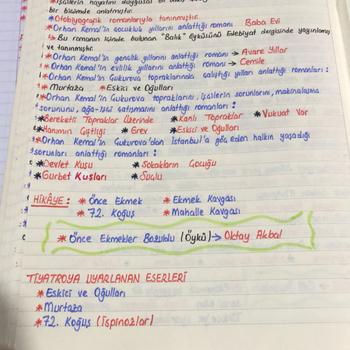 işçilerin hayatını duygusal
bir biçimde anlatmıştır.
*Otobiyografik romanlarıyla tanınmıştır.
*Orhan Kemal'in çocukluk yıllarını anlattığı romanı Baba Evi
↳ Bu romanın içinde bulunan "Balık" öyküsünü Edebiyat dergisinde yayınlamış
ve tanınmıştır.
*Orhan Kemal'in gençlik yıllarını anlattığı romanı → Avare Yıllar
*Orhan Kemal'in evlilik yıllarını anlattığı romanı → Cemile
*Orhan Kemal'in Çukurova topraklarında çalıştığı yılları anlattığı romanları:
*Murtaza *Eskici ve Oğulları
*Orhan Kemal'in Çukurova topraklarını, işçilerin sorunlarını, makinalaşma
sorununu, ağa-işçi çatışmasını anlattığı romanları:
*Bereketli Topraklar Üzerinde *Kanlı Topraklar *Vukuat Var
*Hanımın Çiftliği *Grev *Eskici ve Oğulları
*Orhan Kemal'in Çukurova'dan İstanbul'a göç eden halkın yaşadığı
sorunları anlattığı romanları:
*Devlet Kuşu *Sokakların Çocuğu
*Gurbet Kuşları *Suçlu
HİKÂYE: *Önce Ekmek *Ekmek Kavgası
*72. Koğuş *Mahalle Kavgası
*Önce Ekmekler Bozuldu (Öykü) → Oktay Akbal
TİYATROYA UYARLANAN ESERLERİ
*Eskici ve Oğulları
*Murtaza
*72. Koğuş (İspinozlar)